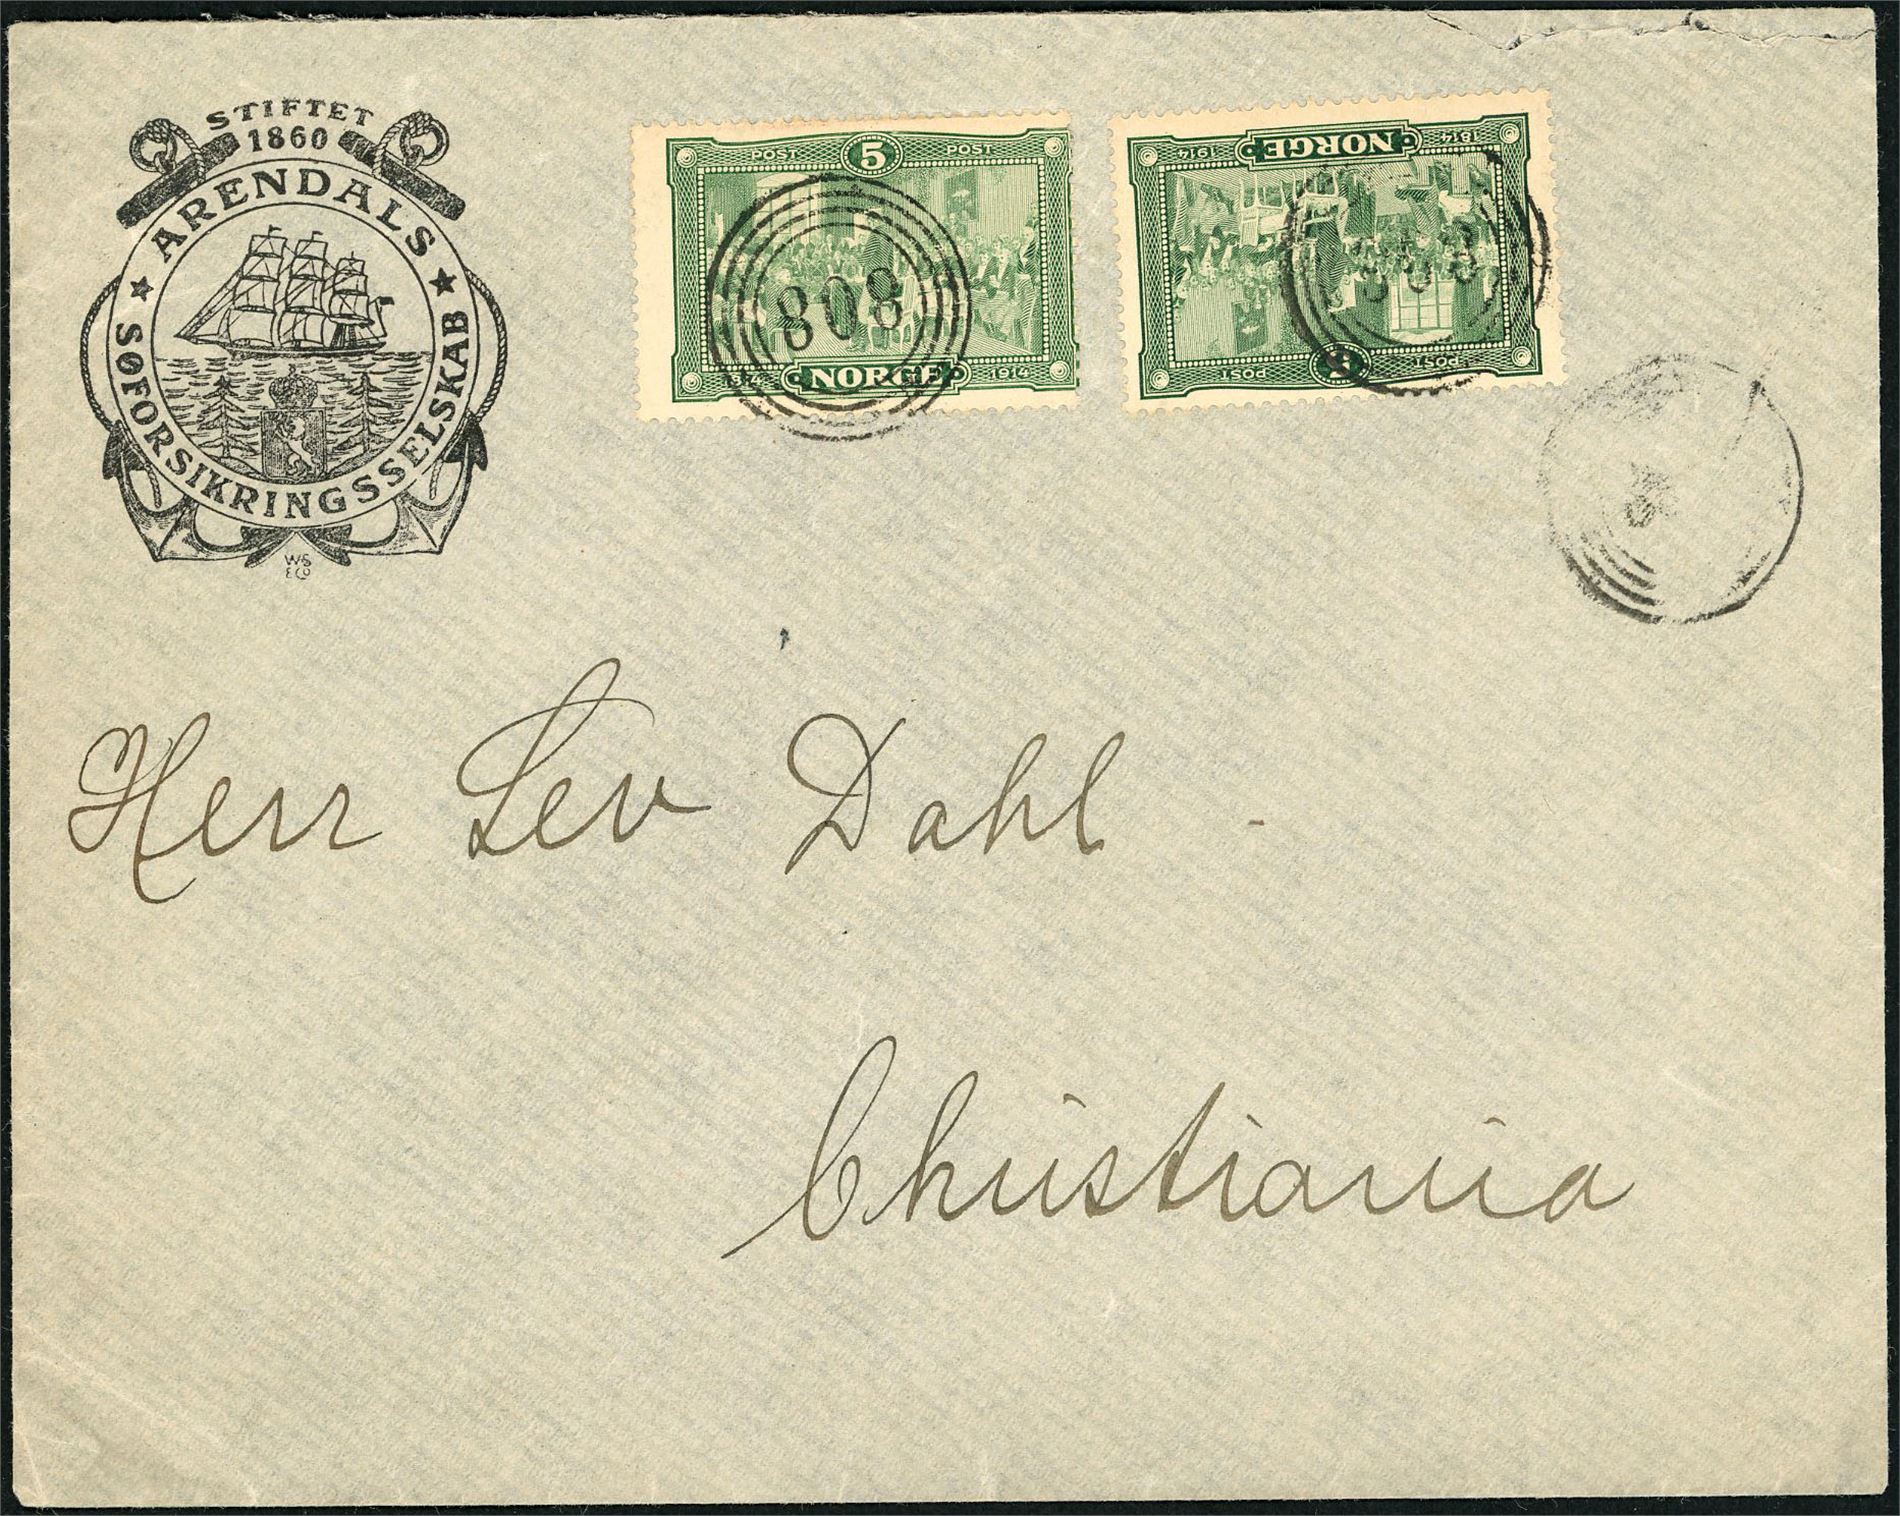 STIFTET
1860
ARENDALS
SØFORSIKRINGSSELSKAB
WS
& Co
POST 5 POST
808
1814 NORGE 1914
1814 NORGE 1914
808
POST 5 POST
Herr Lev Dahl
Christiania